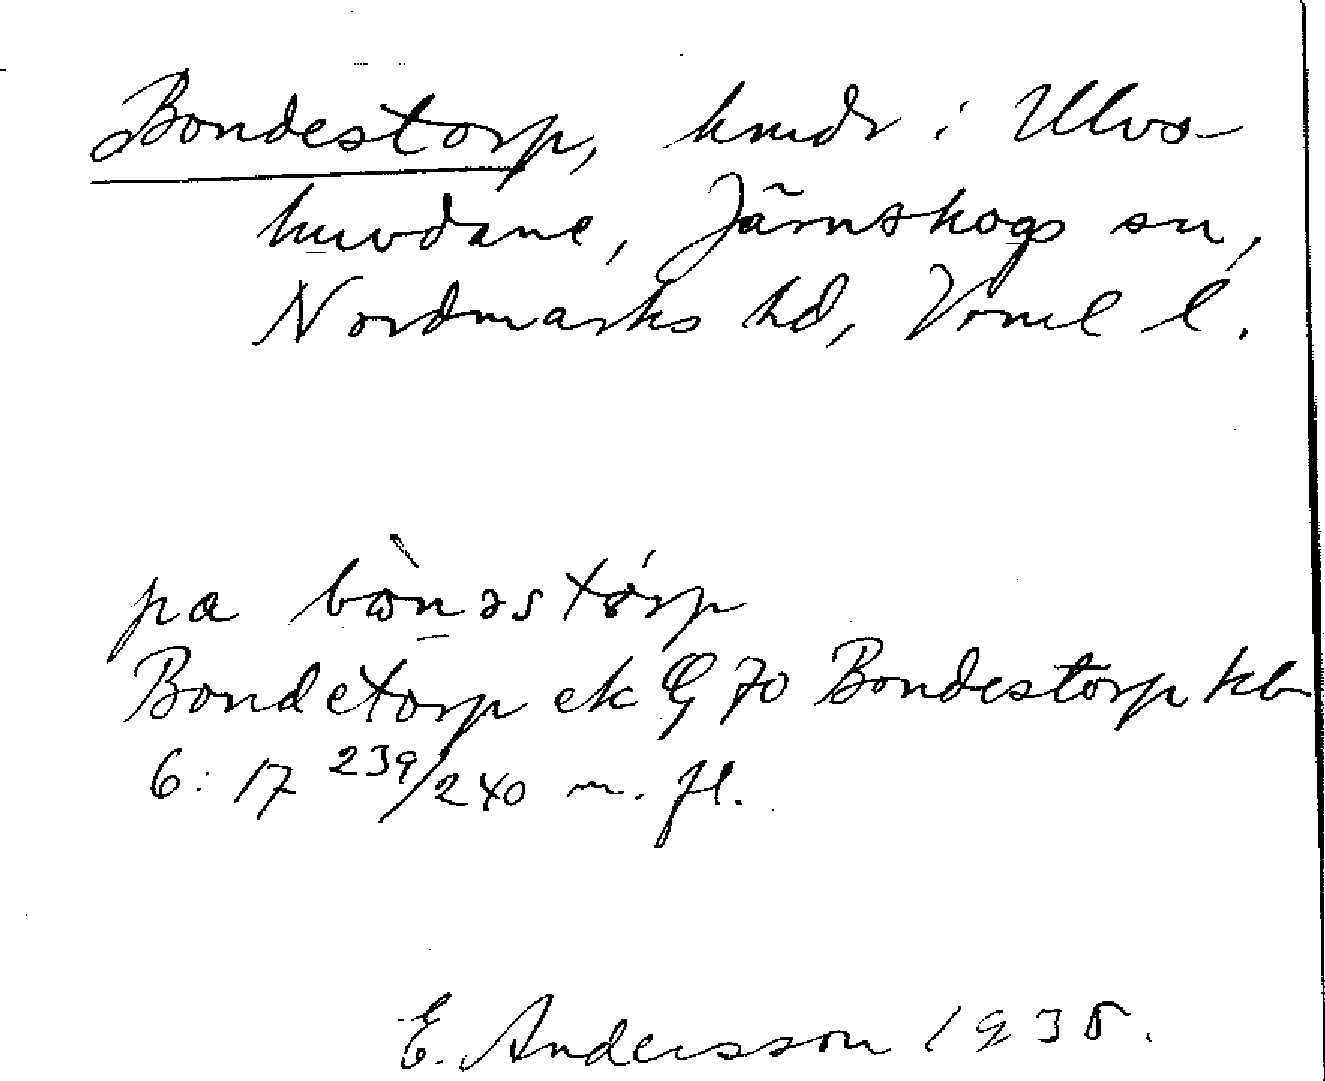 Bondestorp, hmdr i Ulvs-
huvdane, Järnskogs sn,
Nordmarks hd, Vrml l.
pa bònəstórp
Bondetorp ek G 70 Bondestorp kb
6: 17 239/240 m. fl.
E. Andersson 1935.